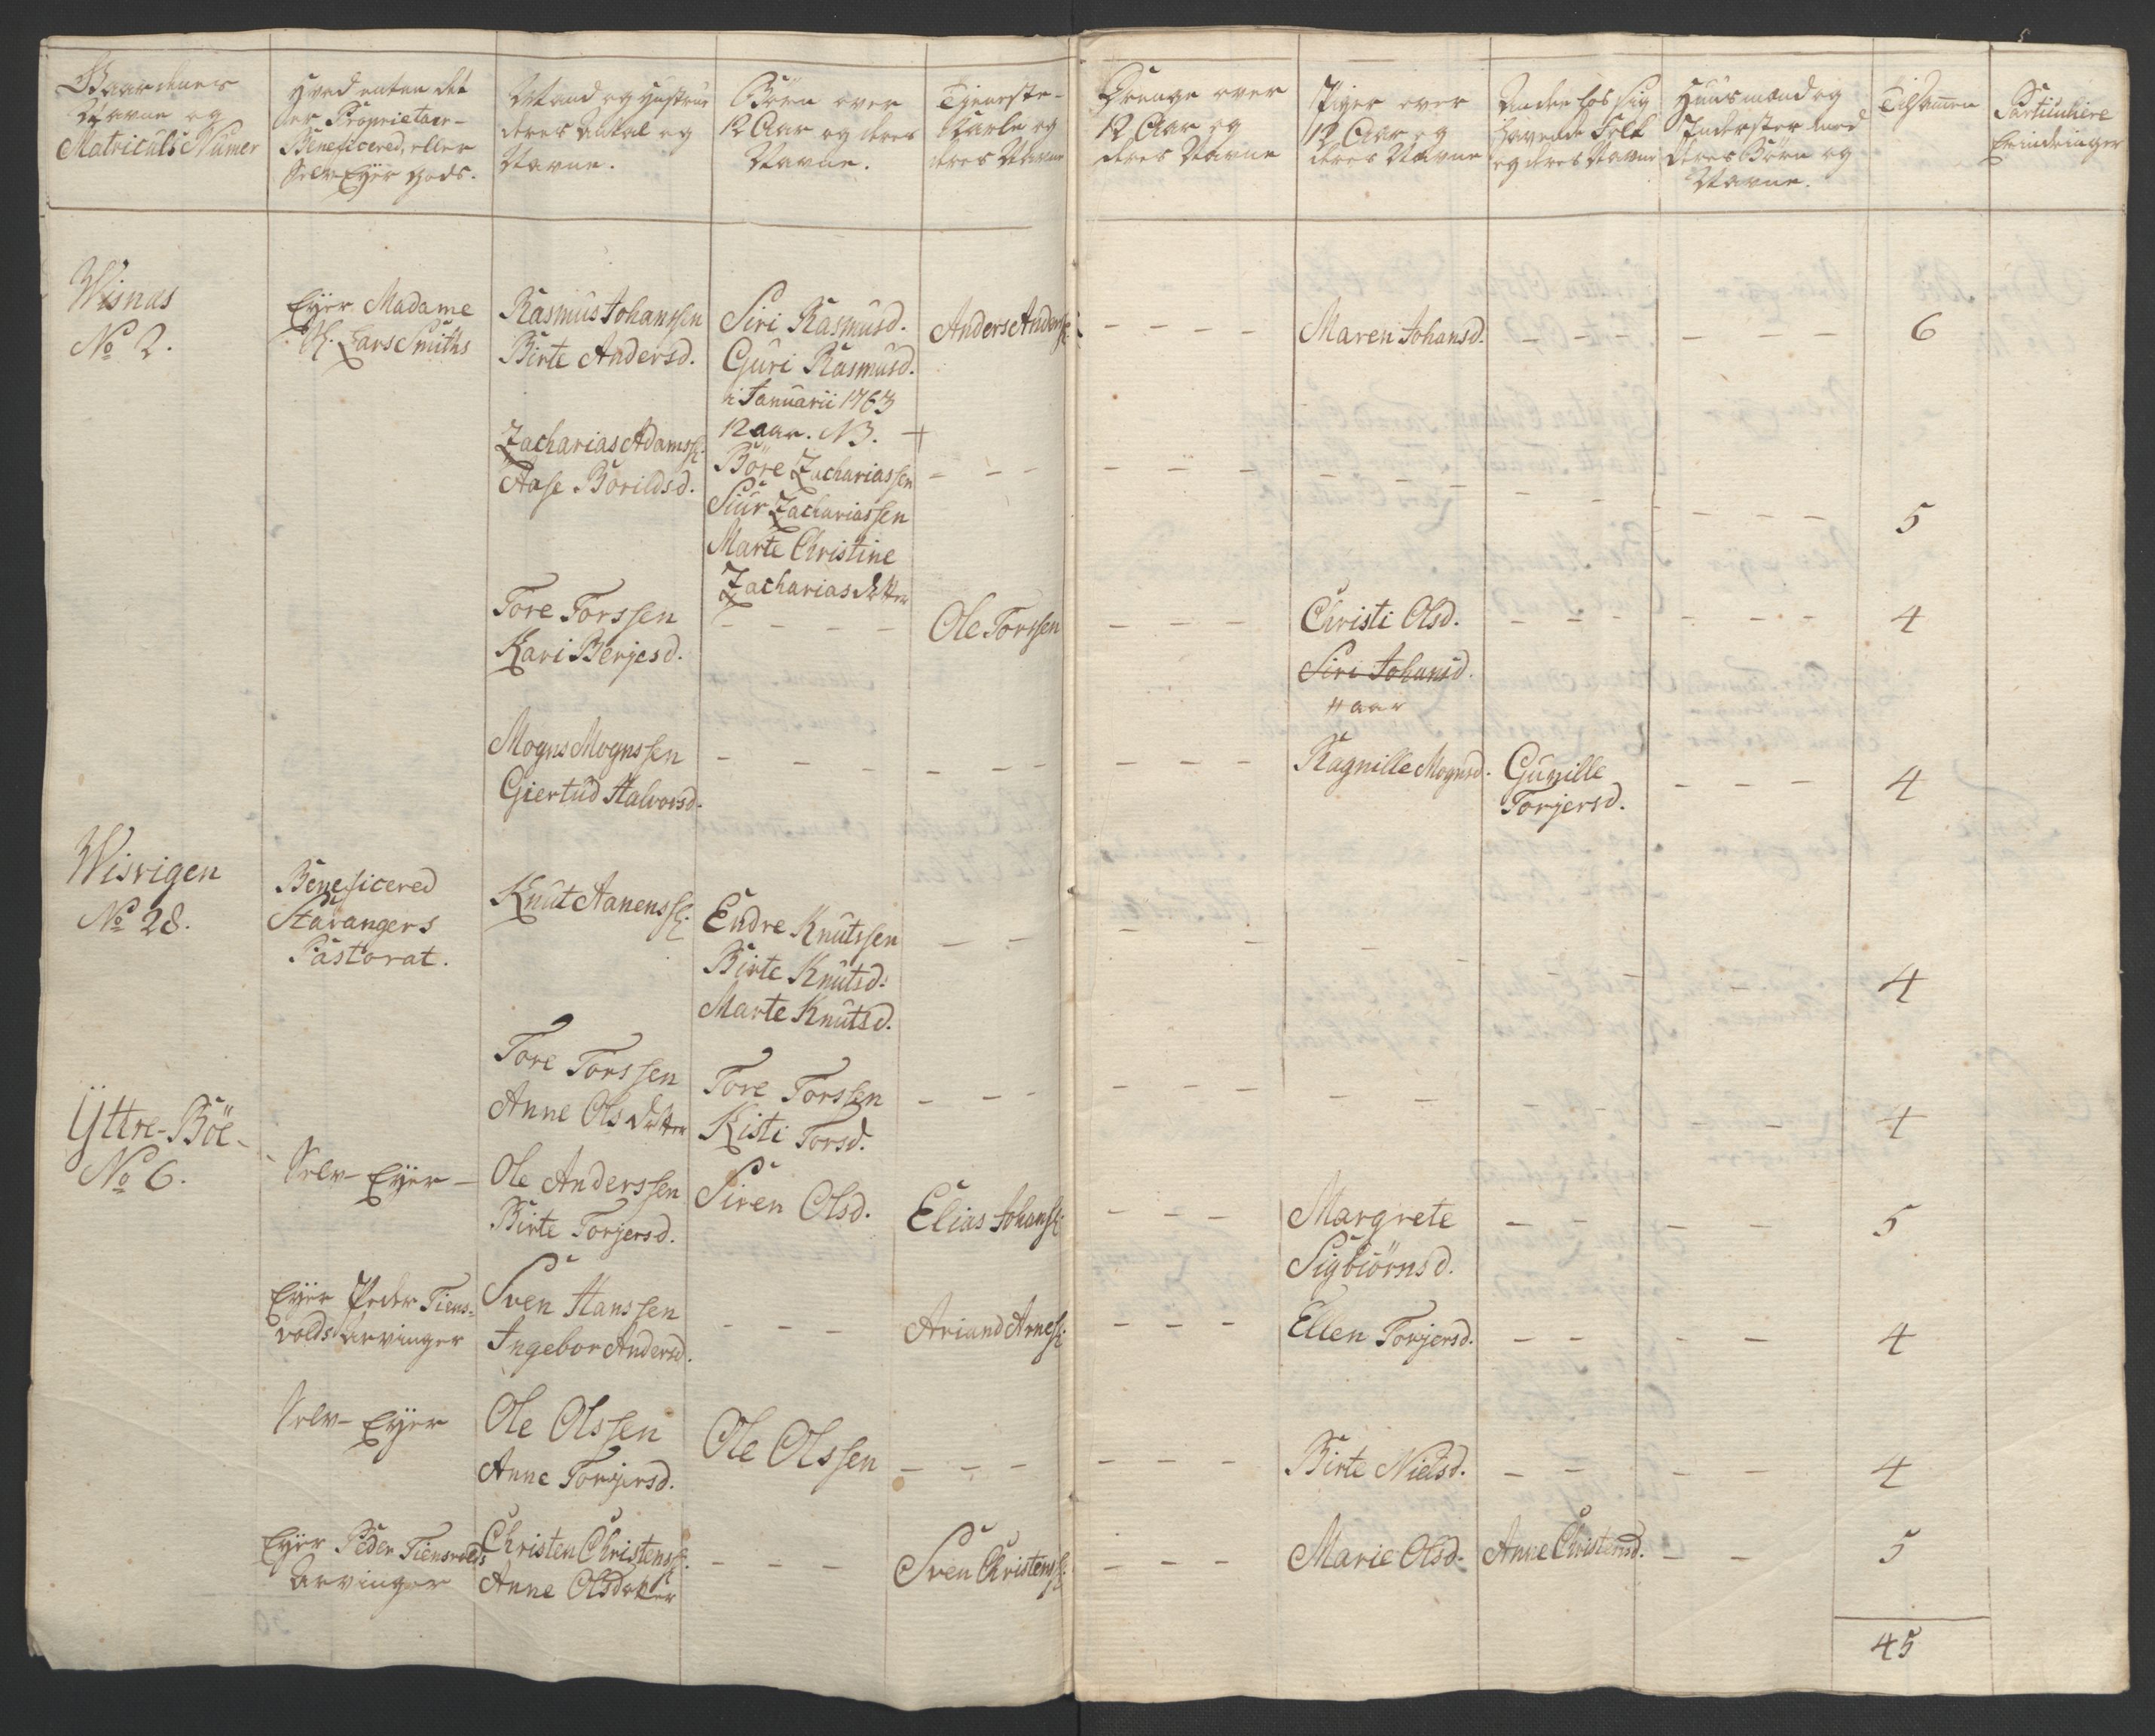 Gaardenes
Navne og
Matriculs Numer
Hvad enten det
er Proprietair-
Beneficered, eller
Selv Eyer gods.
Mand og Hustrue
deres Antal og
Navne.
Börn over
12 Aar og deres
Navne.
Tjeneste-
Karle og
deres Navne
Drenge over
12 Aar og
deres Navne
Piger over
12 Aar og
deres Navne
Andre hos sig
havende Folk
og deres Navne
Huusmænd og
Inderster med
deres Börn og
Navne.
Tilsamen
Particuliere
Erindringer
Wisnæs
No 2.
Eyer Madame
Lars Smiths
Rasmus Johanssen
Birte Andersd.
Siri Rasmusd.
Guri Rasmusd.
i Januarii 1763
12 aar. NB.
Anders Anderss:
- - - -
Maren Johansd.
- - -
- - -
6
Zacharias Adamss:
Aase Börildsd.
Böre Zachariassen
Siur Zachariassen
Marte Christine
Zacharias Datter
- - -
- - -
- - - -
- -
- - - -
5
Tore Torssen
Kari Berjesd.
- - - -
Ole Torssen
- - -
Christi Olsd.
Siri Johansd.
11 aar
- - -
- - - -
4
Mogns Mognssen
Giertud Halvorsd.
- - -
- - -
- - -
Ragnille Mognsd.
Gunille
Torjersd.
- - -
4
Wisvigen
No 28.
Beneficered
Stavangers
Pastorat.
Knut Aanenss:
Endre Knutssen
Birte Knutsd:
Marte Knutsd.
- -
- -
- -
- -
-
4
Tore Torssen
Anne Ols Datter
Tore Torssen
Kisti Torsd.
- - -
- - -
- - -
- -
- -
4
Yttre-Böe-
No 6.
Selv-Eyer-
Ole Anderssen
Birte Torjersd.
Siren Olsd.
Elias Johanss:
- - -
Margrete
Sigbiörnsd.
- -
- -
5
Eyer Peder Tiens-
volds Arvinger
Sven Hanssen
Ingebor Andersd.
- - -
Ariand Arness:
- - -
Ellen Torjersd.
- -
- -
4
Selv-Eyer
Ole Olssen
Anne Torjersd.
Ole Olssen
- - -
- - -
Birte Nielsd.
- -
- -
4
Eyer Peder Tiensvolds
Arvinger
Christen Christenss:
Anne Olsdatter
- - -
Sven Christenss:
- - -
Marie Olsd.
Anne Christensd.
- -
5
45